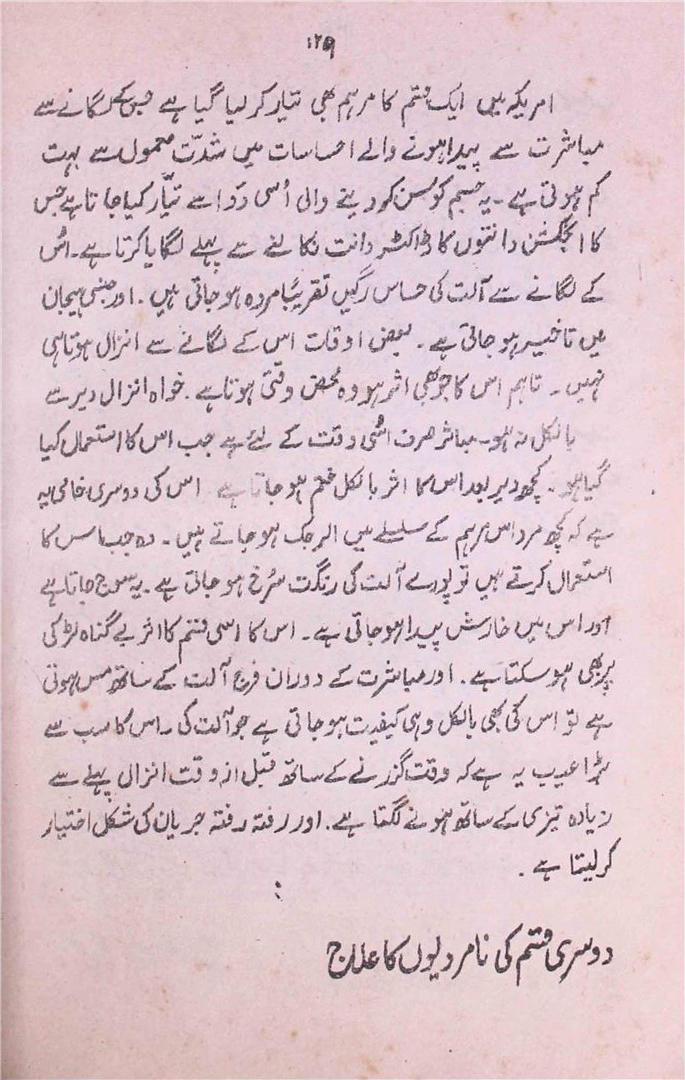 ۱۲۹
امریکہ میں ایک قسم کا مرہم بھی تیار کر لیا گیا ہے جس کے لگانے سے
مباشرت سے پیدا ہونے والے احساسات میں شدّت معمول سے بہت
کم ہوتی ہے۔ یہ جسم کو سُن کر دینے والی اُسی دوا سے تیّار کیا جاتا ہے جس
کا انجکشن دانتوں کا ڈاکٹر دانت نکالنے سے پہلے لگایا کرتا ہے۔ اس
کے لگانے سے آلت کی حساس رگیں تقریباً مردہ ہو جاتی ہیں۔ اور جنسی ہیجان
میں تاخیر ہو جاتی ہے۔ بعض اوقات اس کے لگانے سے انزال ہوتا ہی
نہیں۔ تاہم اس کا جو بھی اثر ہو وہ محض وقتی ہوتا ہے۔ خواہ انزال دیر سے
بالکل نہ ہو۔ مباشر صرف اُسی وقت کے لئے ہے جب اس کا استعمال کیا
گیا ہو۔ کچھ دیر بعد اس کا اثر بالکل ختم ہو جاتا ہے اس کی دوسری خامی یہ
ہے کہ کچھ مرد اس مرہم کے سلسلے میں الرجک ہو جاتے ہیں۔ وہ جب اس کا
استعمال کرتے ہیں تو پورے آلت کی رنگت سُرخ ہو جاتی ہے۔ یہ سوج جاتا ہے
اور اس میں خارش پیدا ہو جاتی ہے۔ اس کا اسی قسم کا اثر بے گناہ لڑکی
پر بھی ہو سکتا ہے۔ اور مباشرت کے دوران فرج آلت کے ساتھ مس ہوتی
ہے تو اس کی بھی بالکل وہی کیفیت ہو جاتی ہے جو آلت کی۔ اس کا سب سے
بڑا عیب یہ ہے کہ وقت گزرنے کے ساتھ قبل از وقت انزال پہلے سے
زیادہ تیزی کے ساتھ ہونے لگتا ہے۔ اور رفتہ رفتہ جریان کی شکل اختیار
کر لیتا ہے۔
دوسری قسم کی نامردیوں کا علاج